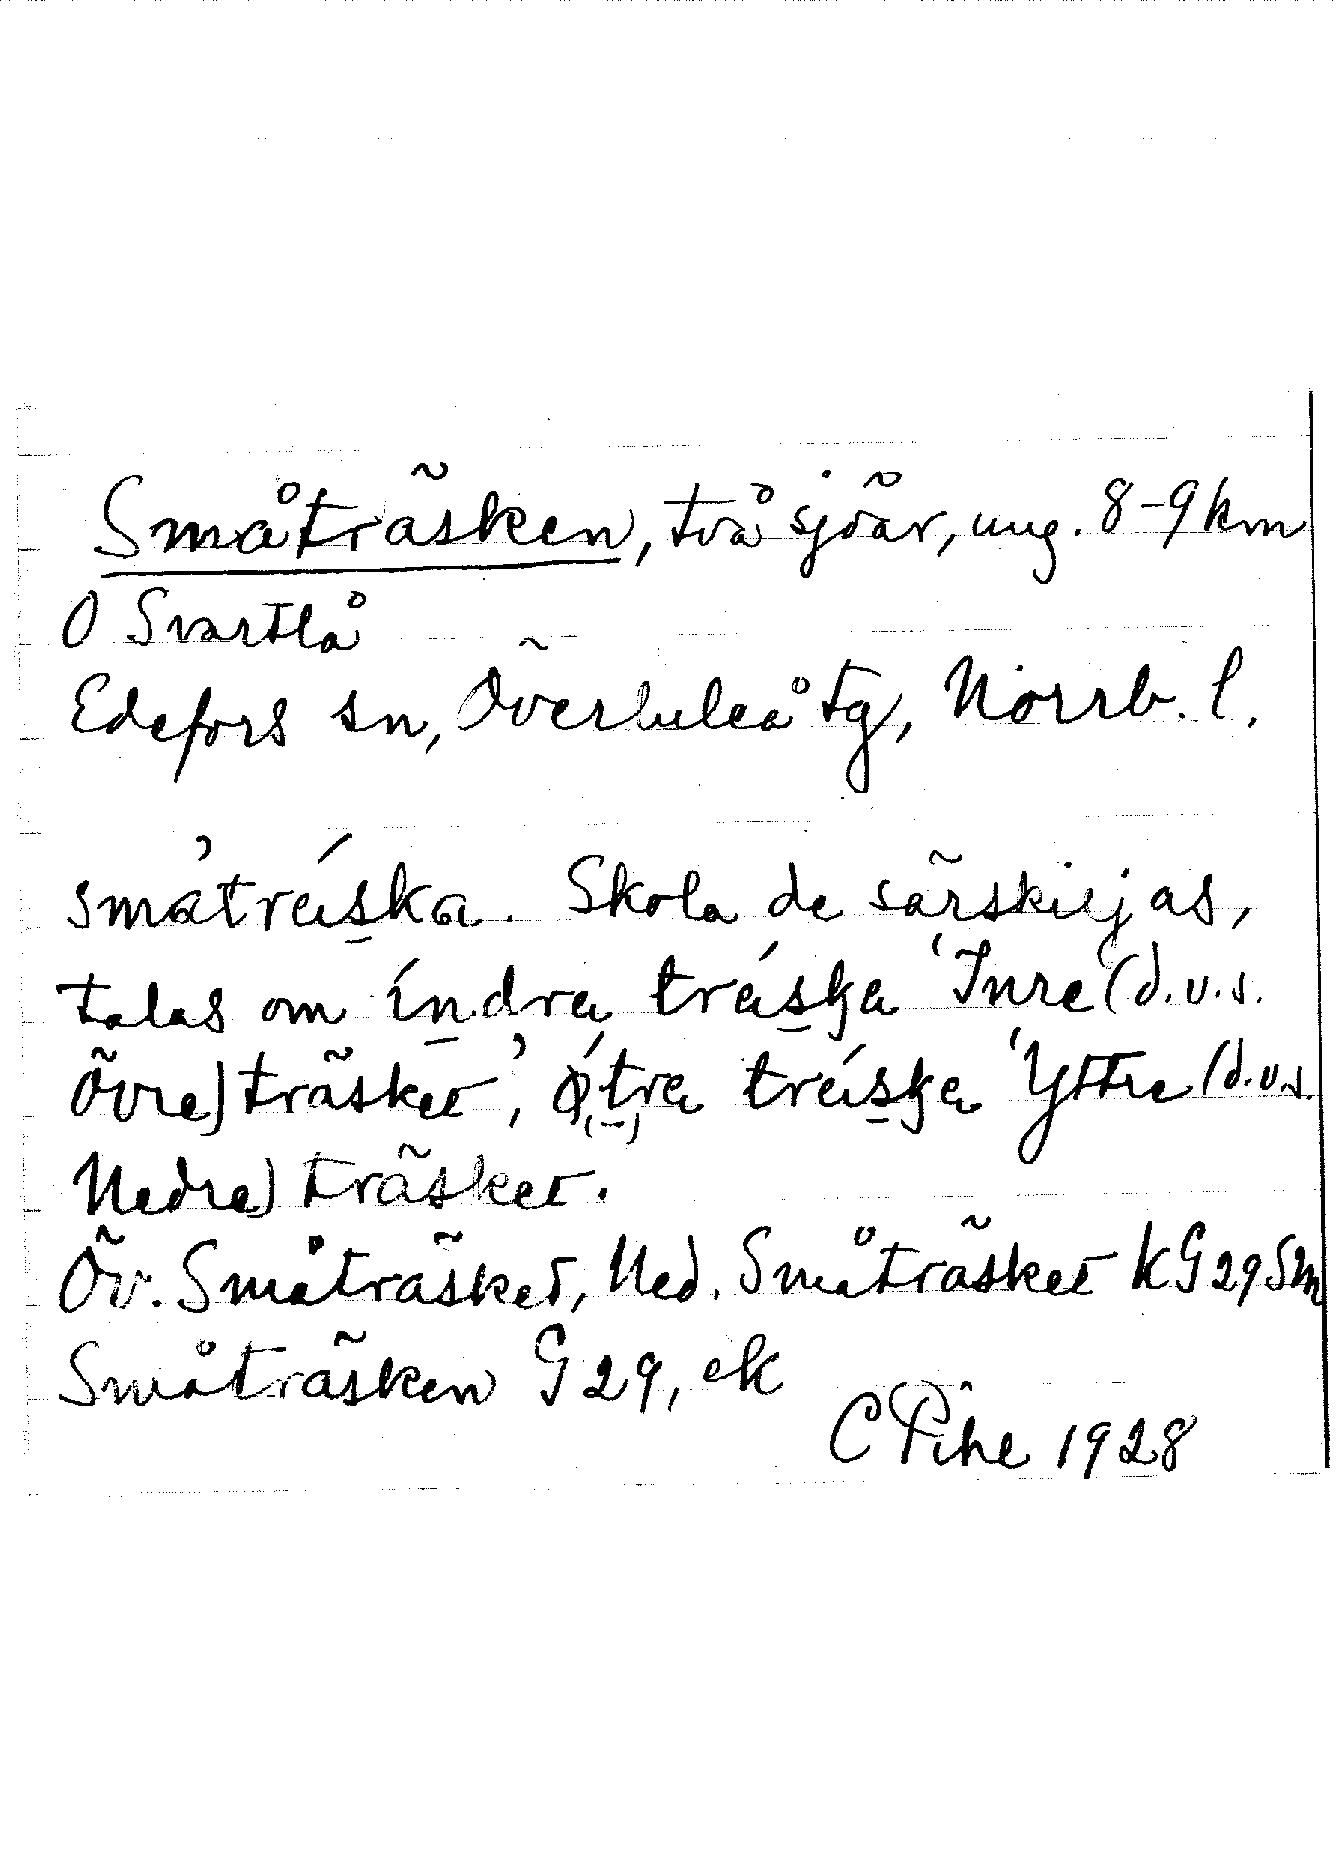 Småträsken, två sjöar, ung. 8-9 km
O Svartlå
Edefors sn, Överluleå tg, Norrb. l.
småträska. Skola de särskiljas,
talas om índra träska 'Inre (d.v.s.
Övre) träsket', ǿtra träska 'Yttre (d.v.s.
Nedre) träsket.
Öv. Småträsket, Ned. Småträsket KG29Sm
Småträsken G29, ek
C Pihl 1928